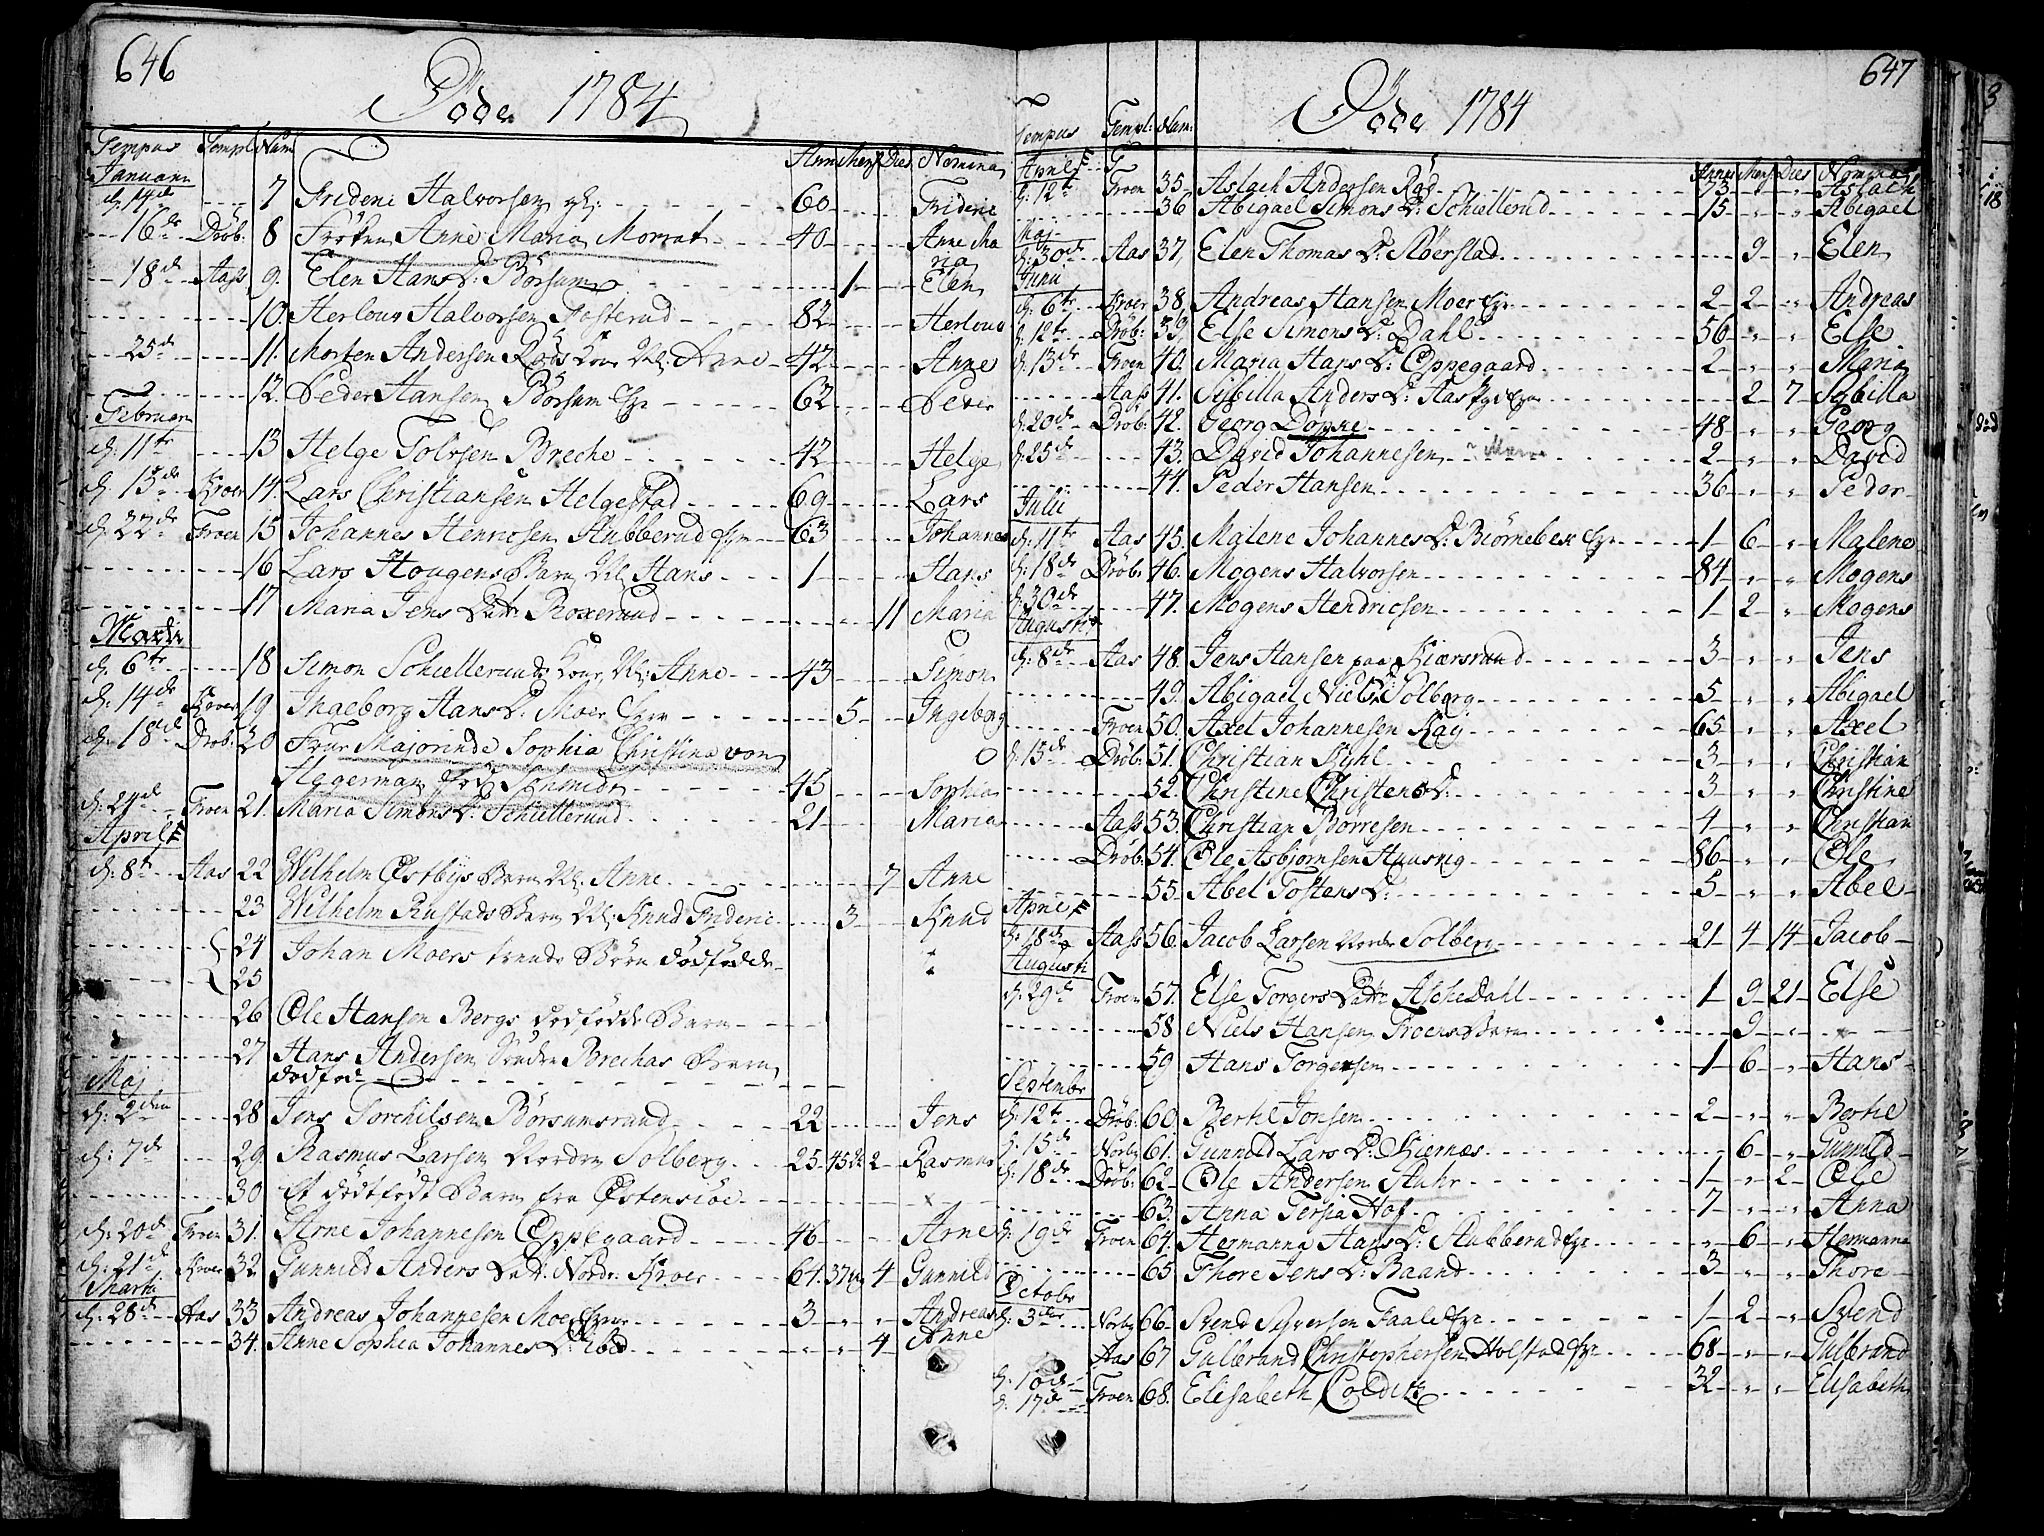 646
Døde 1784
Tempus Templ Num Anni Mens Dies Nomina
Januarii
d. 14de 7 Frideric Halvorsen 60 Frideric
16de Dröb. 8 Frøken Anne Maria Morrat 40 Anne Ma
ria
18de Aass 9. Elen Hans D. Börsum 1 Elen
10. Herlour Halvorsen Fosterud 82 Herlour
25de 11. Morten Andersen Röds Kone Nl. Anne 42 Anne
12. Peder Hansen Börsum Eje 62 Peder
Februarii
d. 11te 13 Helge Tolvsen Breche 42 Helge
d. 15de Kroer 14. Lars Christiansen Helgestad 69 Lars
d. 22de Froen 15 Johannes Henricsen Stubberud Eje 63 Johannes
16 Lars Hougens Barn Nl. Hans 1 Hans
17 Maria Jens Datr. Roxerud 11 Maria
Martii
d. 6te 18 Simon Schiellerud Kone Nl. Anne 43 Simon
d. 14de Kroer 19 Ingeborg Hans D. Moer Eje 5 Ingeborg
d. 18de Dröb. 20 Frue Majorinde Sophia Christina von
Hagerman Schmidt 45 Sophia
d. 24de Froen 21. Maria Simons D. Schiellerud 21 Maria
Aprilis
d. 8te Aas 22 Wilhelm Østbyes Barn Nl. Anne 7 Anne
23 Wilhelm Rustads Barn Nl. Knud Frideric 3 Knud
24 Johan Moers tvende Börn dödfödde
25
26 Ole Hansen Bergs dödfödde Barn
27 Hans Andersen Söndre Brechas Barn
dödfød
Maj
d. 2den 28 Jens Torchilsen Börsumsrund 22 Jens
d. 7de 29 Rasmus Larsen Nordre Solberg 25 45 2 Rasmus
30 Et dödfödt Barn fra Østensiöe
d. 20de Froen 31. Arne Johannesen Oppegaard 46 Arne
d. 21de Kroer 32 Gunnild Anders Datr. Nordr. Kroer 64 37 4 Gunnild
Martii
d. 28de Aas 33 Andreas Johannesen Moer Eje 3 Andreas
34. Anne Sophia Johannes D. ibd 4 Anne
647
Døde 1784
Tempus Templ: Num: Anni Mens Dies Nomina
Aprilis
d. 12te Froen 35 Aslach Andersen Röd 73 Aslach
36 Abigael Simons D. Schiellerud 15 Abigael
Maj
d. 30de Aas 37, Elen Thomas D. Röerstad 9 Elen
Junii
d. 6te Kroer 38, Andreas Hansen Moer Eje 2 2 Andreas
d. 12te Dröb. 39, Else Simons D. Dahl 56 Else
d. 13de Froen 40. Maria Hans D. Oppegaard 2 Maria
Aass 41. Sibilla Anders D. Aas 2 7 Sibilla
d. 20de Dröb. 42. Georg Döpke 48 Georg
d. 25de 43. David Johannesen 2 David
44. Peder Hansen 36 Peder
Julii
d. 11te Aas 45. Malene Johannes D. Biörnebek Eje 1 6 Malene
d. 18de Dröb. 46. Mogens Halvorsen 84 Mogens
d. 30de 47. Mogens Hendricsen 1 2 Mogens
Augusti
d. 8de Aas 48. Jens Hansen paa Kiærsrund 3 Jens
49. Abigael Niels D. Solberg 5 Abigael
Froen 50. Axel Johannesen Kay 65 Axel
d. 15de Dröb. 51. Christian Kyhl 3 Christian
52. Christine Christens D. 3 Christine
Aass 53. Christian Borresen 4 Christian
Dröb. 54. Ole Asbjørnsen Huusvig 86 Ole
55. Abel Tostens D. 5 Abel
Aprilis
d. 18de Aass 56. Jacob Larsen Nordre Solberg 21 4 14 Jacob
Augusti
d. 29de Froen 57. Else Torgers Datr. AscheDahl 1 9 21 Else
58 Niels Hansen Froens Barn 9
59 Hans Torgersen 1 6 Hans
Septembr
d. 12te Dröb. 60. Bertil Jonsen 2 Bertil
d. 15de Norby 61. Gunnild Lars D. Kiernæs 6 Gunnild
d. 18de Dröb. 62 Ole Andersen Stuhr 1 2 Ole
63. Anna Tersia Hof 7 Anna
d. 19de Froen 64. Hermanna Hans D. Stubberud Eje 6 Hermanna
65. Thore Jens D. Baand 3 Thore
Octobr
d. 3die Norby 66 Svend Syversen Faale Eje 1 2 Svend
d. 10de Aas 67 Gulbrand Christophersen Holstad Eje 68 Gulbrand
d. 17de Froen 68. Elisabeth Colditz 32 Elisabeth